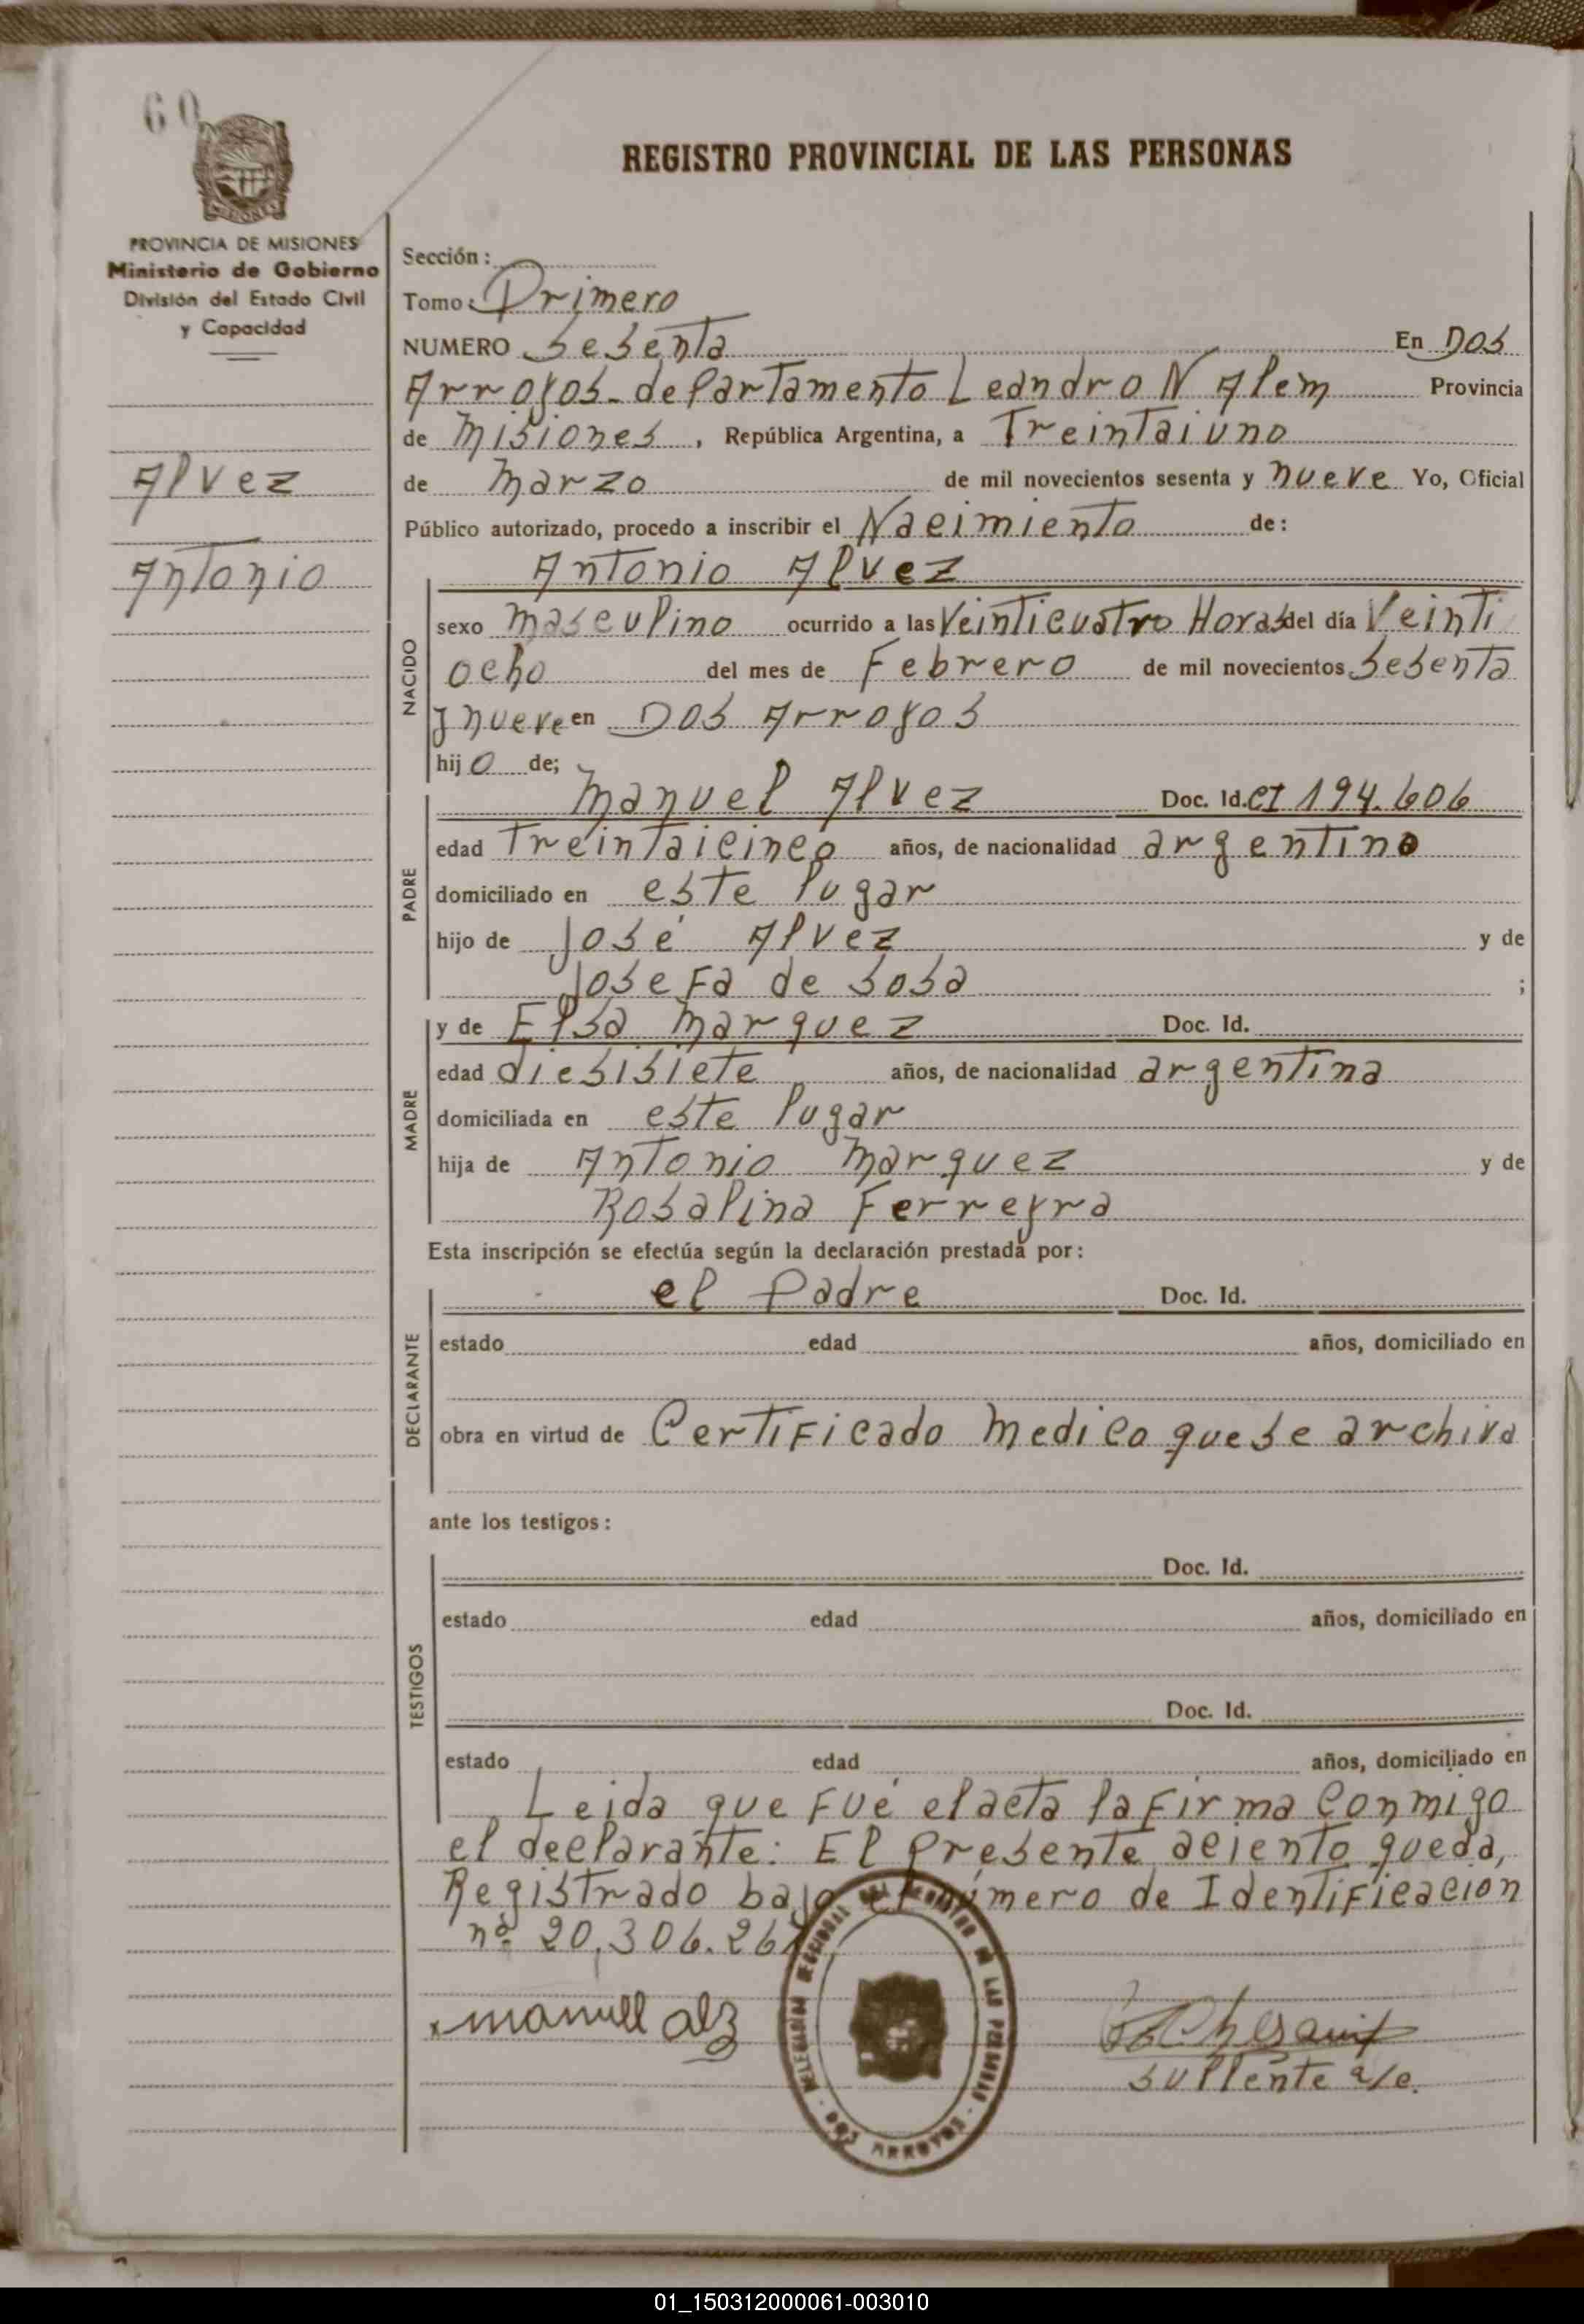 60
PROVINCIA DE MISIONES
Ministerio de Gobierno
División del Estado Civil
y Capacidad
Alvez
Antonio
REGISTRO PROVINCIAL DE LAS PERSONAS
Sección:
Tomo: Primero
NUMERO Sesenta En Dos
Arroyos. departamento Leandro N Alem Provincia
de Misiones, República Argentina, a Treintaiuno
de Marzo de mil novecientos sesenta y nueve Yo, Oficial
Público autorizado, procedo a inscribir el Nacimiento de:
Antonio Alvez
NACIDO
sexo masculino ocurrido a las Veinticuatro Horas del día Veinti
ocho del mes de Febrero de mil novecientos Sesenta
y nueve en Dos Arroyos
hijo de;
PADRE
Manuel Alvez Doc. Id. CI 194.606
edad Treintaicinco años, de nacionalidad argentino
domiciliado en este lugar
hijo de José Alvez y de
Josefa de Sosa ;
MADRE
y de Elsa Marquez Doc. Id.
edad diesisiete años, de nacionalidad argentina
domiciliada en este lugar
hija de Antonio Marquez y de
Rosalina Ferreyra
Esta inscripción se efectúa según la declaración prestada por:
DECLARANTE
el Padre Doc. Id.
estado edad años, domiciliado en
obra en virtud de Certificado Medico que se archiva
ante los testigos:
TESTIGOS
Doc. Id.
estado edad años, domiciliado en
Doc. Id.
estado edad años, domiciliado en
Leida que Fué el acta la Firma Conmigo
el declarante: El Presente aciento queda,
Registrado bajo el número de Identificacion
nº 20.306.26
manuell alz
suplente a/c.
DELEGACION REGIONAL DEL REGISTRO DE LAS PERSONAS
DOS ARROYOS
01_150312000061-003010